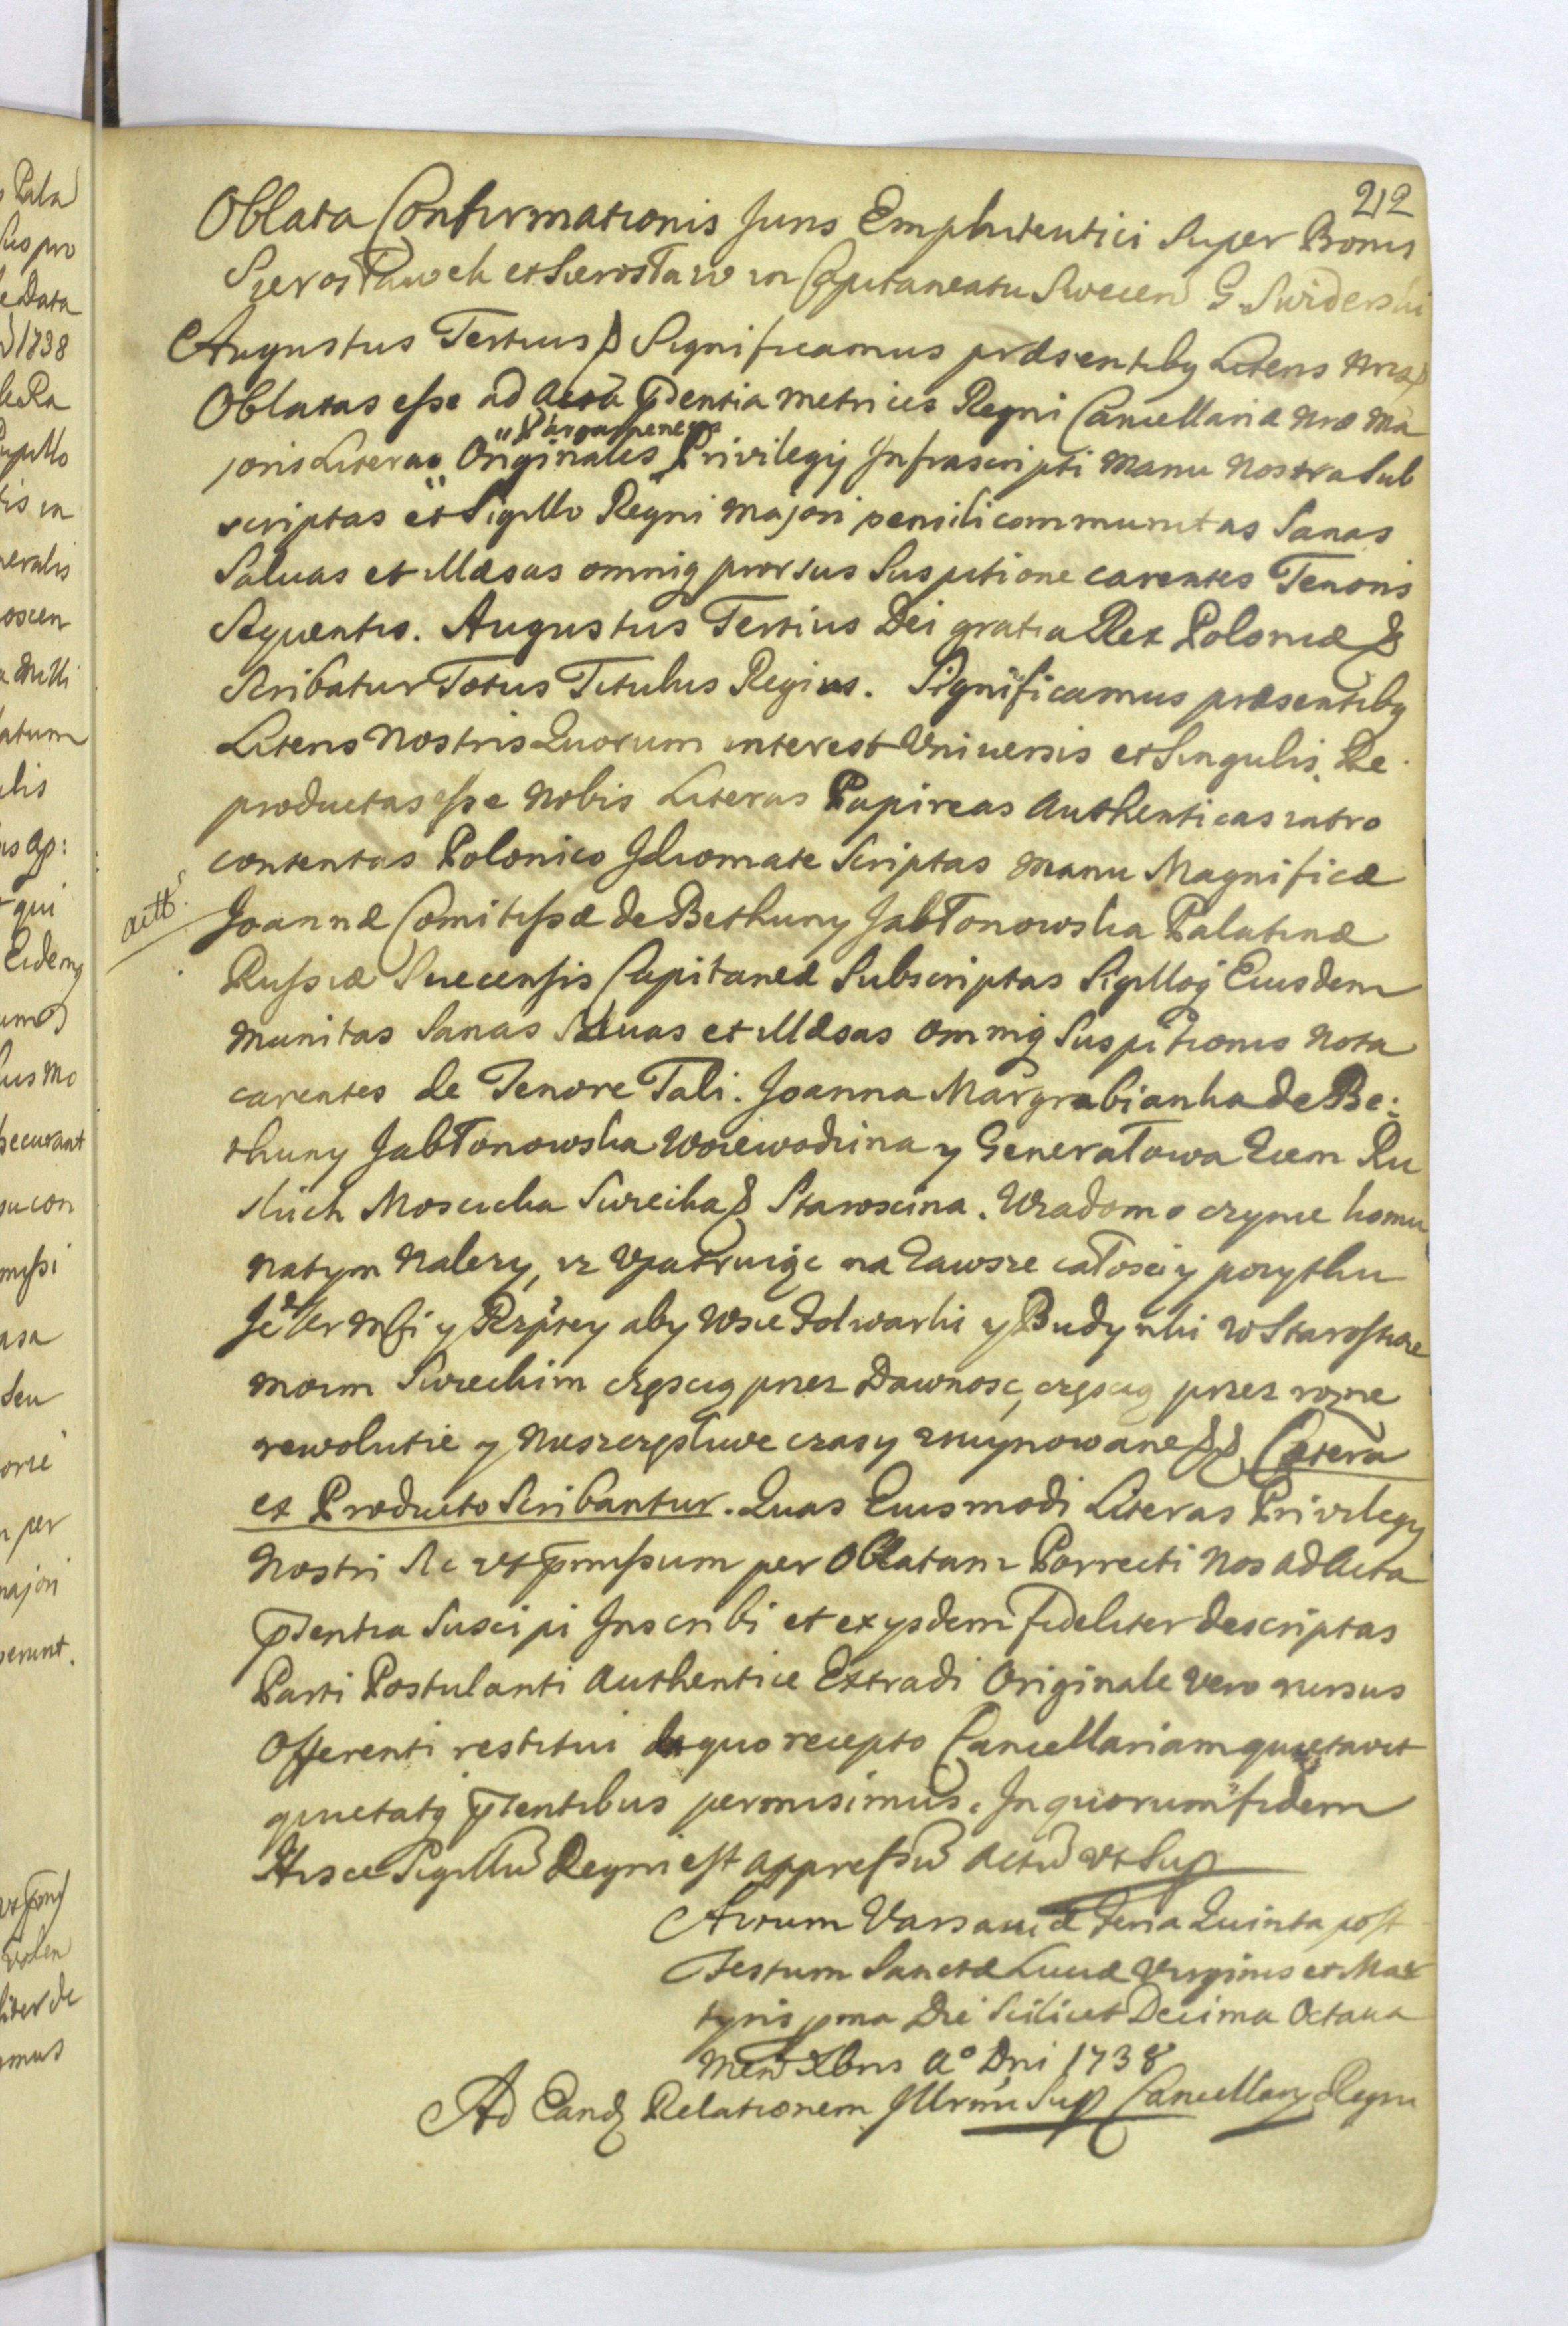 212
Oblata Confirmationis Juris Emphitentici Super Bonis
Sierosławek et Sierosław in Capitaneatu Swecen G. Swiderski
Augustus Tertius Significamus præsentibq Literis nris
Oblatas esse ad Acta pñdentia metrices Regni Cancellariæ nræ Ma
Pargameneas
joris Literas Originales Privilegij Infrascripti Manu Nostra Sub
scriptas et Sigillo Regni Majori pensili communitas Sanas
Saluas et Illæsas omniq prorsus Suspitione carentes Tenoris
Sequentis. Augustus Tertius Dei gratia Rex Poloniæ &
Scribatur Totus Titulus Regius. Significamus præsentibq
Literis Nostris Quorum interest Vniuersis et Singulis. Re
productas esse Nobis Literas Papireas Authenticas intro
contentas Polonico Idiomate Scriptas Manu Magnificæ
actt.
Joannæ Comitissæ de Bethuny Jabłonowska Palatinæ
Russiæ Suecensis Capitaneæ Subscriptas Sigilloq Eiusdem
Munitas Sanas Saluas et Illæsas omniq Suspitionis Nota
carentes de Tenore Tali. Joanna Margrabianka de Be:
thuny Jabłonowska Woiewodzina y Generałowa Ziem Ru
skich Moscicka Swiecka & Staroscina. Wiadomo czynie komu
Natym Nalezy, iz vpatruiąc na zawsze całosci y pozytku
JeKr Msci y Rzptey aby Wsie Folwarki y Budynki w Starostwie
Moim Swieckim częscią przez Dawnosc, częscią przez rozne
rewolutie y Nieszczęsliwe czasy zruynowane && Cætera
ex Producto Scribantur. Quas Eiusmodi Literas Privilegij
Nostri Ac vt præmissum per Oblatam Porrecti Nos ad Acta
pñdentia Suscipi Inscribi et ex ijsdem fideliter descriptas
Parti Postulanti Authentice Extradi Originale Vero rursus
Offerenti restitui de quo recepto Cancellariam quietavit
quietatq pñdentibus permisimus. In quorum fidem
Hisce Sigillũ Regni est appressũ Actũ vt Sup
Actum Varsauiæ Feria Quinta post
Festum Sanctæ Luciæ Virginis et Mar
tyris pma Die Scilicet Decima Octaua
Men Xbris Aº Dni 1738
Ad Eand Relationem Illrmi Sup Cancellarij Regni